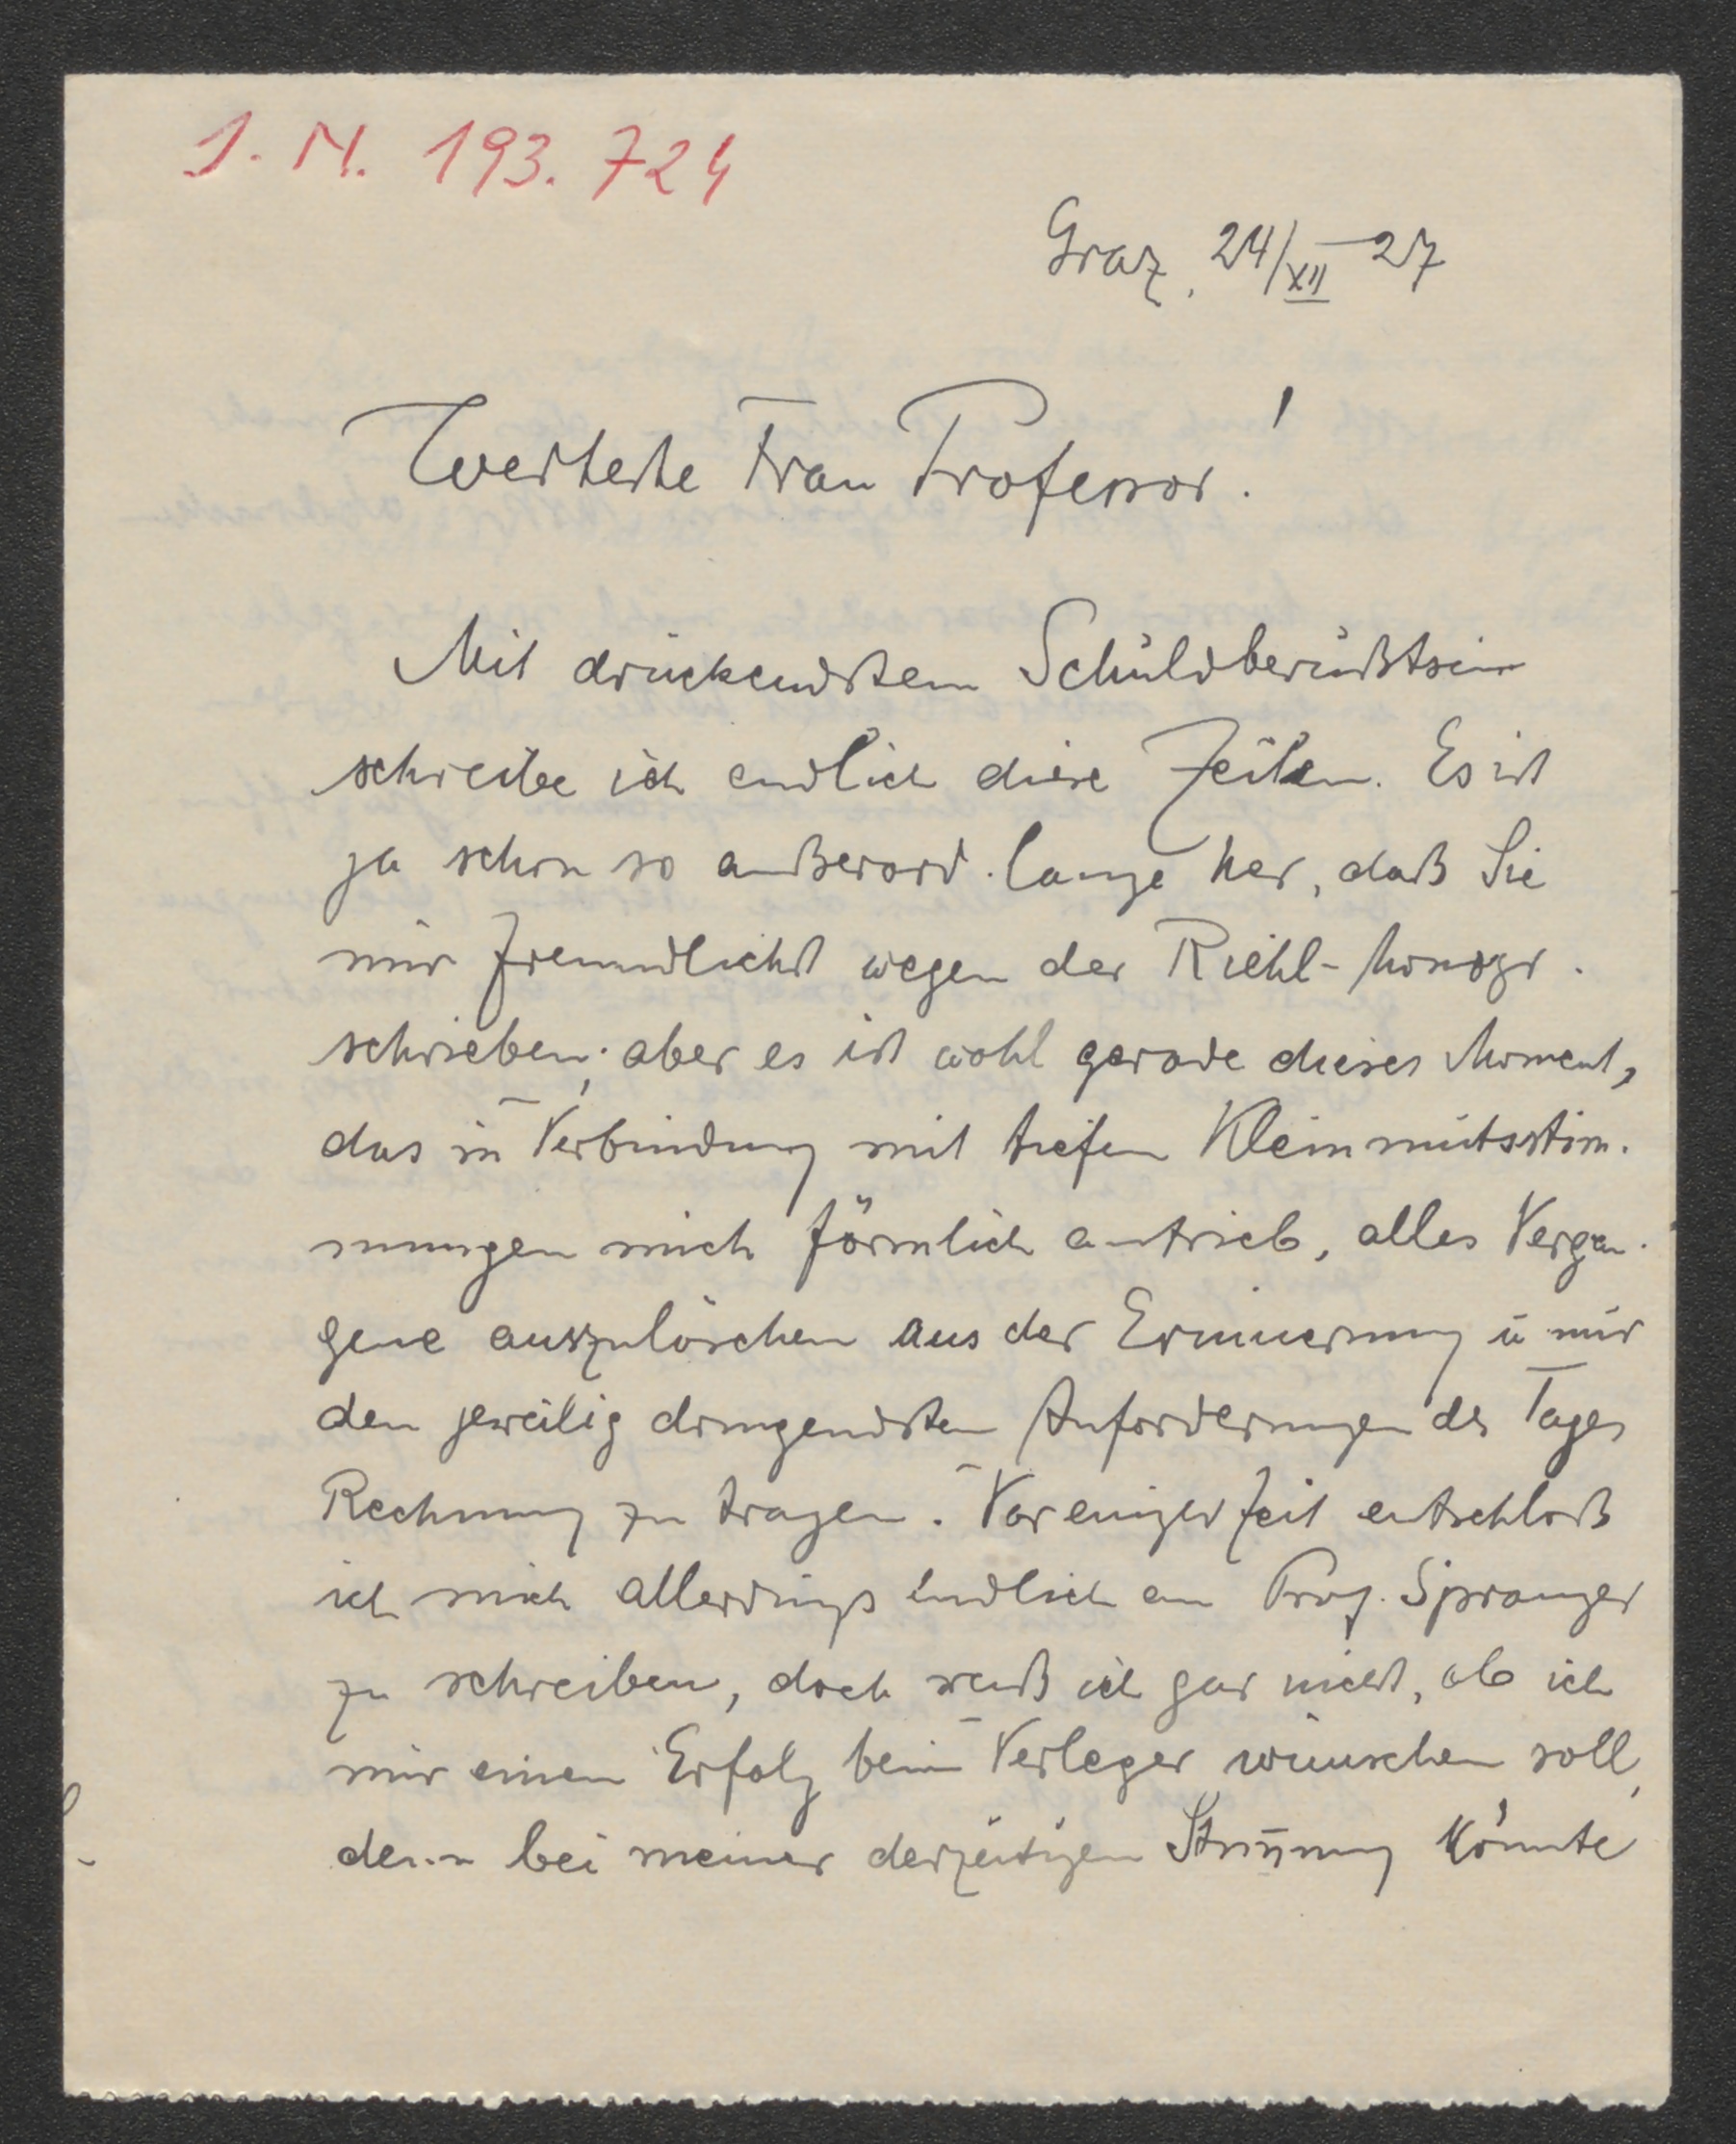 J. N. 193.724
Graz, 24/XII 27
Werteste Frau Professor!
Mit drückendstem Schuldbewußtsein
schreibe ich endlich diese Zeilen. Es ist
ja schon so außerord. lange her, daß Sie
mir freundlichst wegen der Riehl-Monogr.
schrieben; aber es ist wohl gerade dieses Moment,
das in Verbindung mit tiefen Kleinmutsstim-
mungen mich förmlich antrieb, alles Vergan-
gene auszulöschen aus der Erinnerung u mir
den jeweilig dringendsten Anforderungen des Tages
Rechnung zu tragen. Vor einiger Zeit entschloß
ich mich allerdings endlich an Prof. Spranger
zu schreiben, doch weiß ich gar nicht, ob ich
mir einen Erfolg beim Verleger wünschen soll,
denn bei meiner derzeitigen Stim̄ung könnte